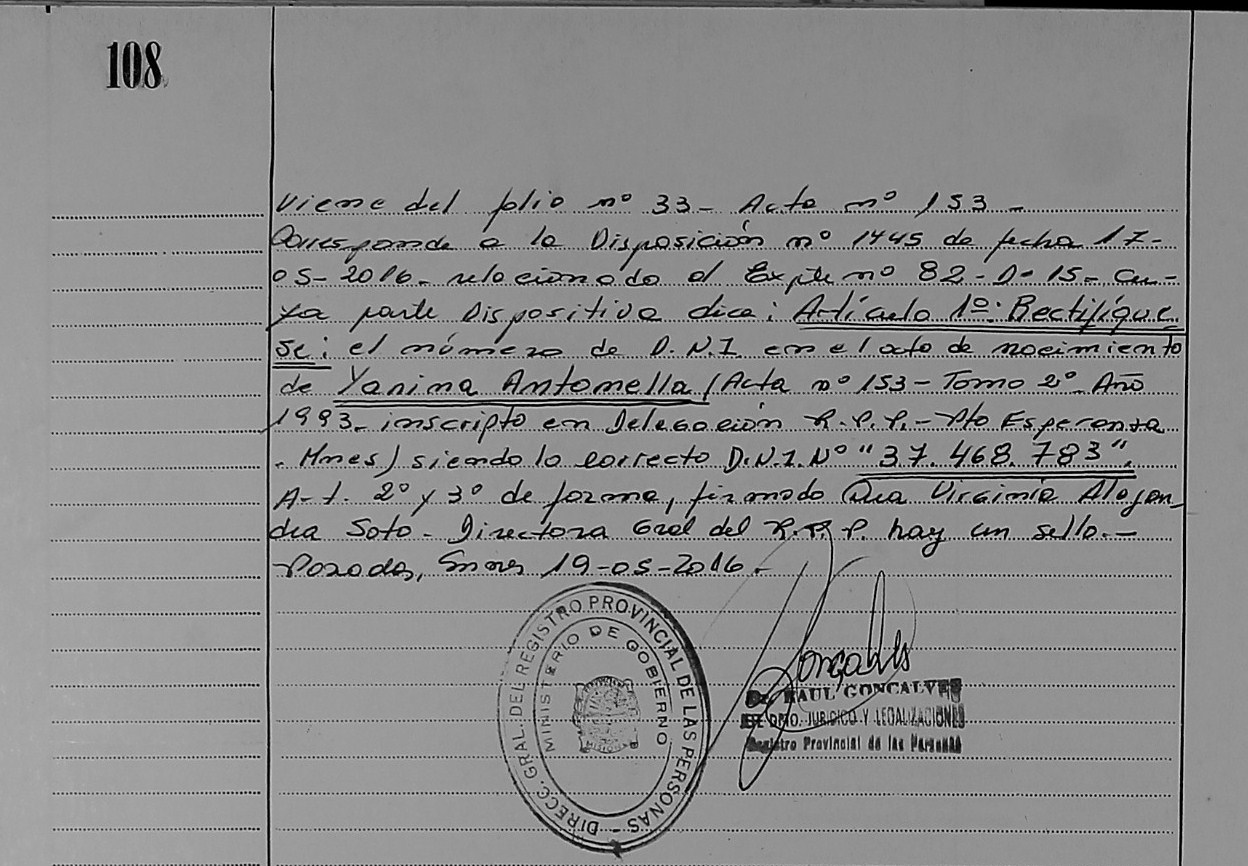 108
Viene del folio nº 33 - Acta nº 153 -
Corresponde a la Disposición nº 1445 de fecha 17-
05-2016 - relacionado al Expte nº 82-D-15- Cu-
ya parte Dispositiva dice: Artículo 1º: Rectifíque
se: el número de D.N.I en el acta de nacimiento
de Yanina Antonella (Acta nº 153 - Tomo 2º Año
1993. inscripto en Delegación R.P.P. - Pto Esperanza
- Mnes) siendo lo correcto D.N.I. Nº "37.468.783".
Art. 2º y 3º de forma, firmado Dra Virginia Alejan
dra Soto - Directora Gral del R.P.P. hay un sello.-
Posadas, Mnes 19-05-2016.-
DIRECC. GRAL. DEL REGISTRO PROVINCIAL DE LAS PERSONAS -
MINISTERIO DE GOBIERNO
MISIONES
Gonçalves
Dr. RAUL GONCALVES
JEFE DPTO. JURIDICO Y LEGALIZACIONES
Registro Provincial de las Personas